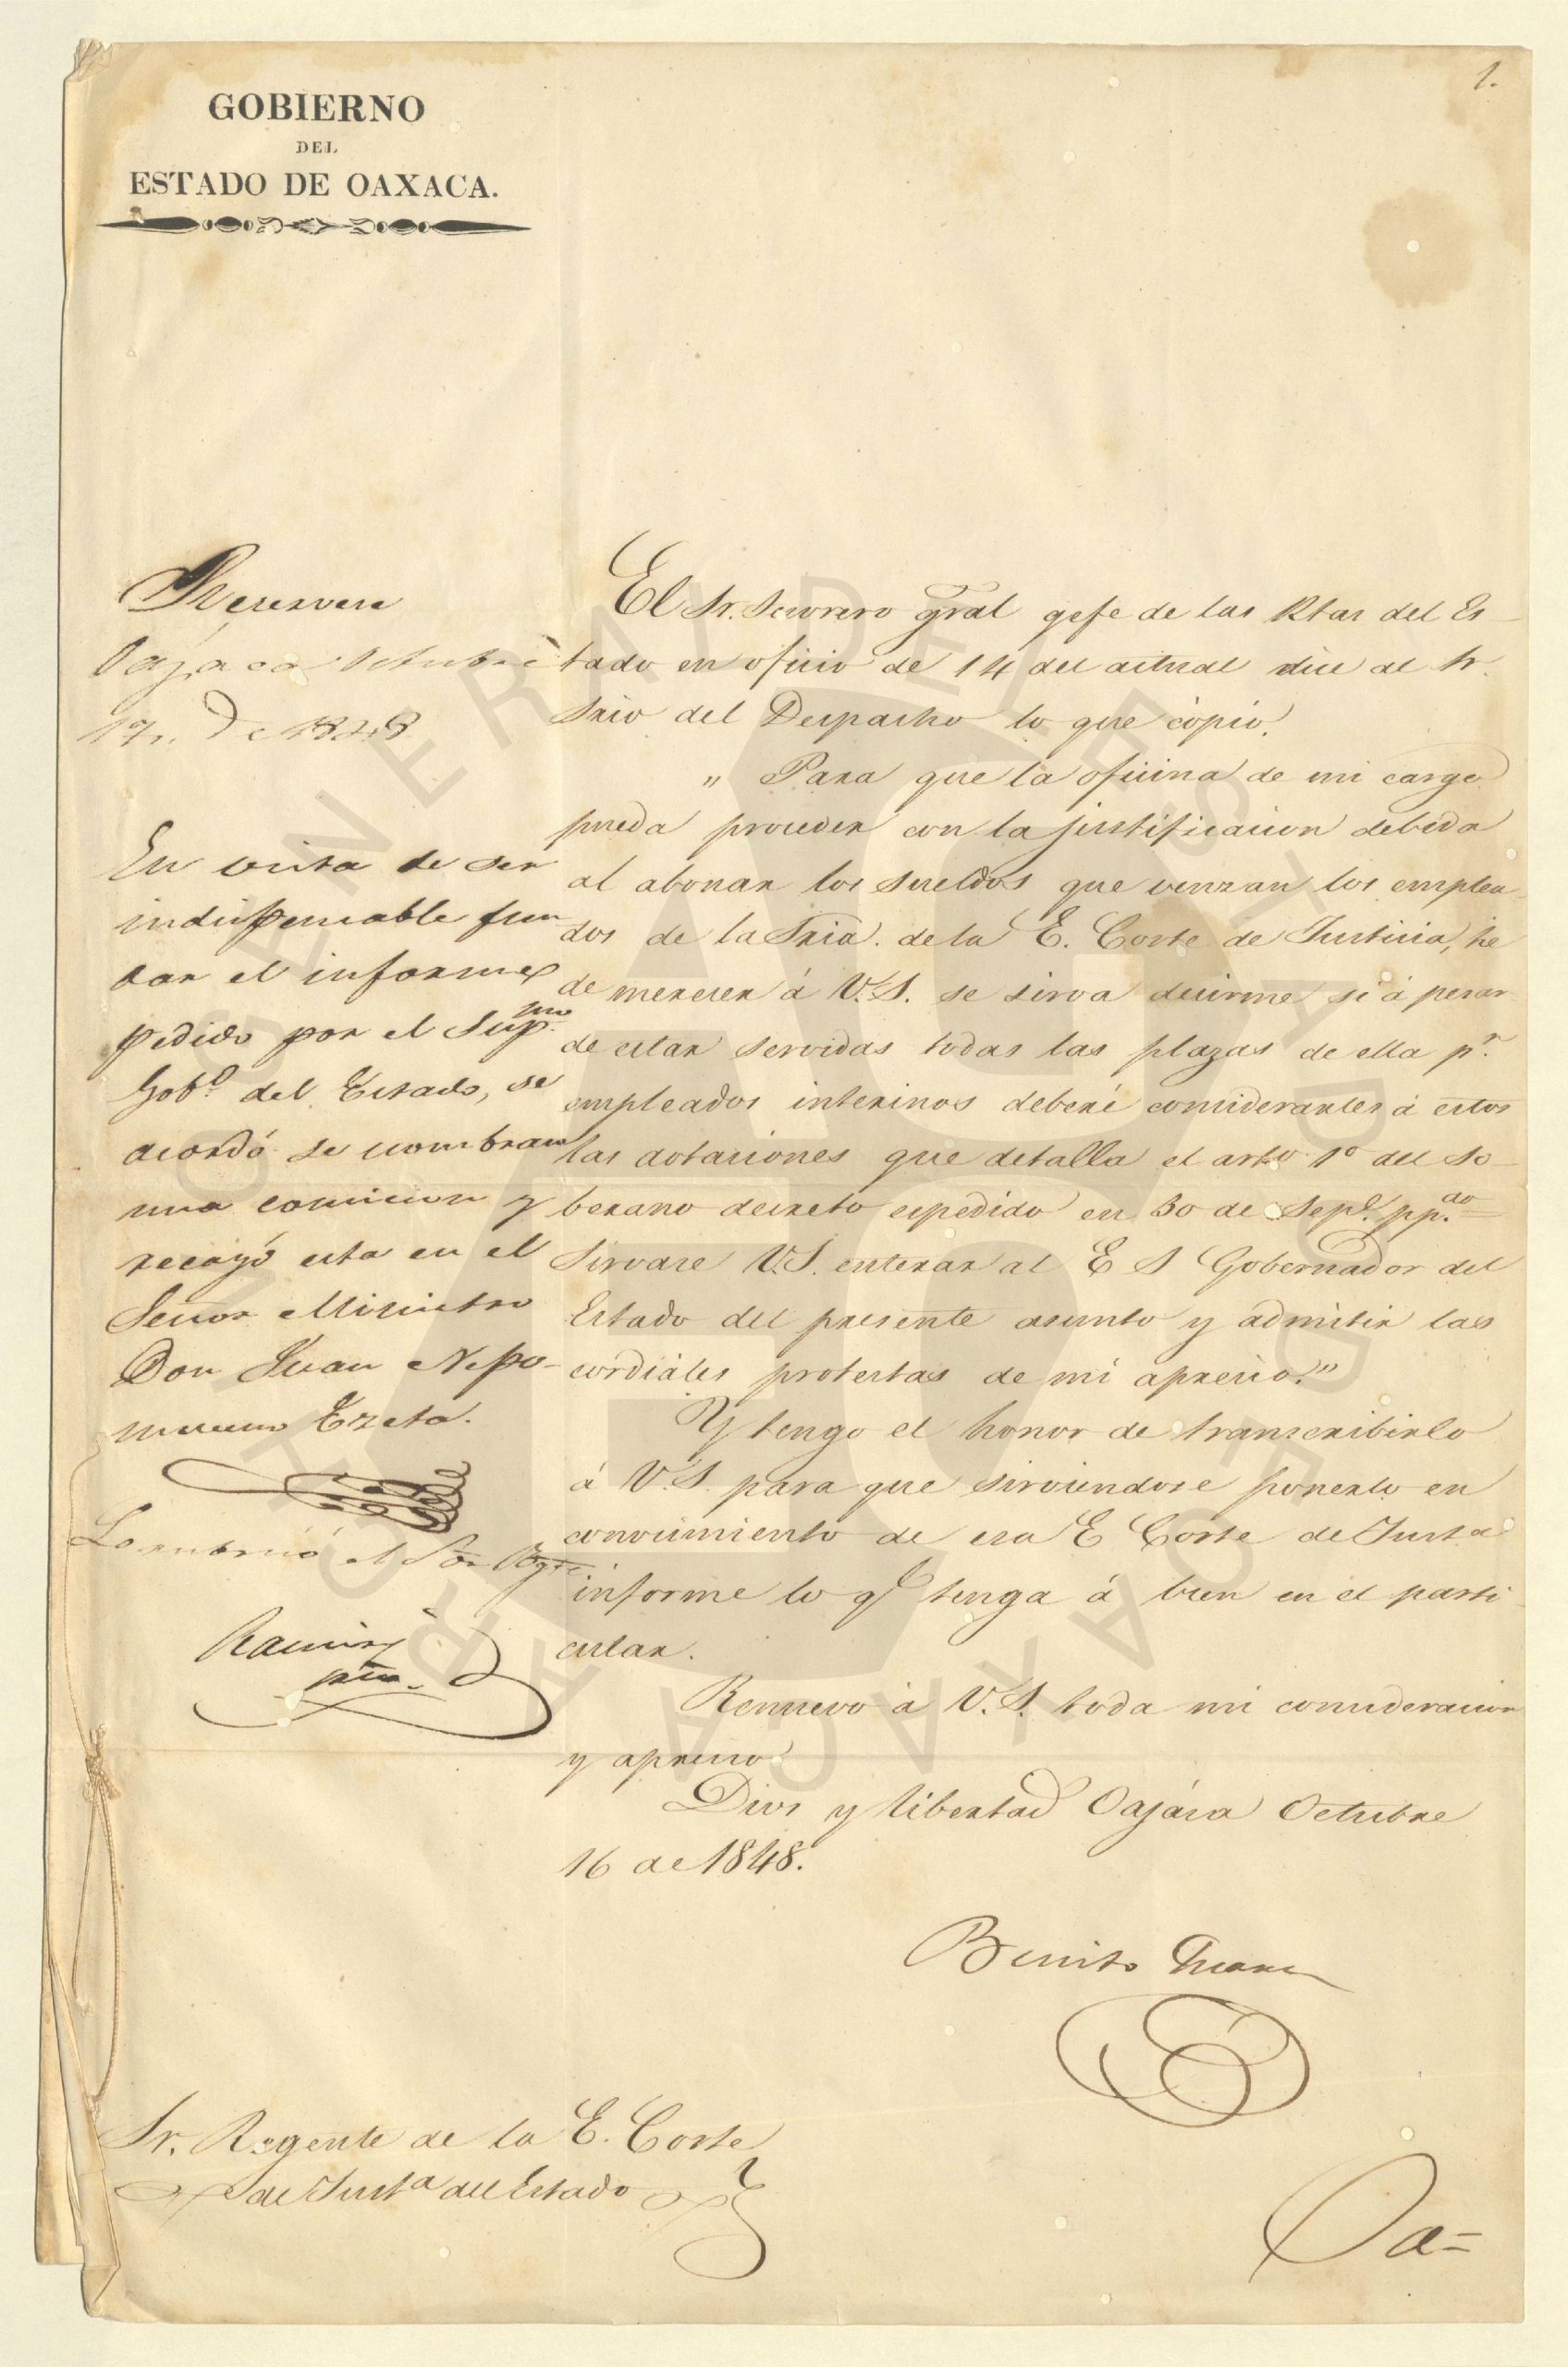 1.
GOBIERNO
DEL
ESTADO DE OAXACA.
Oajaca Octubre
17,, de 1848
En vista de ser
indispensable fun
dar el informe
pedido por el Sup.mo
Gob.o del Estado, se
acordó se nombrara
una comicion y
recayó esta en el
Señor Ministro
Don Juan Nepo-
muceno Ezeta.
Lo rubricó el Sor
Ramirez
El Sr. Tesorero gral gefe de las Rtas del Es-
tado en oficio de 14 del actual dice al Sr.
Srio del Despacho lo que cópio.
„ Para que la oficina de mi cargo
pueda proceder con la justificacion debida
al abonar los sueldos que venzan los emplea-
dos de la Sria. de la E. Corte de Justicia, he
de merecer á V.S. se sirva decirme si á pesar
de estar servidas todas las plazas de ella p.r
empleados interinos deberé considerarles á estos
las dotaciones que detalla el arto 1o del So-
berano decreto espedido en 30 de Sep.e pp.do
Sirvase V.S. enterar al E S Gobernador del
Estado del presente asunto y admitir las
cordiales protestas de mi aprecio."
Y tengo el honor de transcribirlo
á V.S. para que sirviendose ponerlo en
conocimiento de esa E Corte de Justa
informe lo qe tenga á bien en el parti-
cular.
Renuevo á V.S. toda mi consideracion
y aprecio
Dios y libertad Oajáca Octubre
16 de 1848.
Benito Juarez
Sr. Regente de la E. Corte
de Justa del Estado
Oa=
ARCHIVO GENERAL DEL ESTADO DE OAXACA